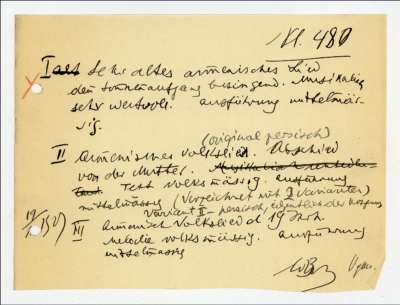 Kl. 480
I Sehr altes armenisches Lied
den Sonnenaufgang besingend. Musikalisch
sehr wertvoll. Ausführung mittelmäs-
sig.
(original persisch)
II Armenisches Volkslied. Abschied
von der Mutter.
Text volksmässig. Ausführung
mittelmässig (Verzeichnet mit 3 Varianten)
Variante II - persisch,
III Armenisch Volkslied 19 Jarh.
Melodie volksmässig. Ausführung
mittelmässig